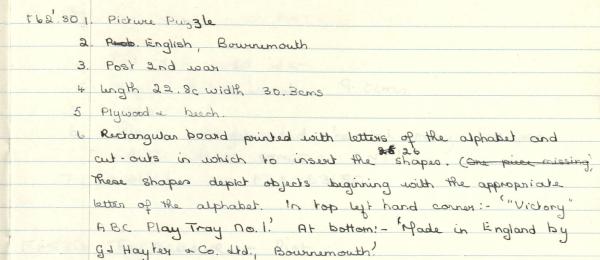 T62'.80 1. Picture Puzzle
2. Prob. English, Bournemouth
3. Post 2nd war
4 Length 22.8c width 30.3cms
5 Plywood & beech.
6 Rectangular board printed with letters of the alphabet and
cut-outs in which to insert the 26 shapes. (One piece missing)
These shapes depict objects beginning with the appropriate
letter of the alphabet. In top left hand corner:- '"Victory"
ABC Play Tray No.1.' At bottom:- 'Made in England by
GJ Hayter & Co. Ltd., Bournemouth.'